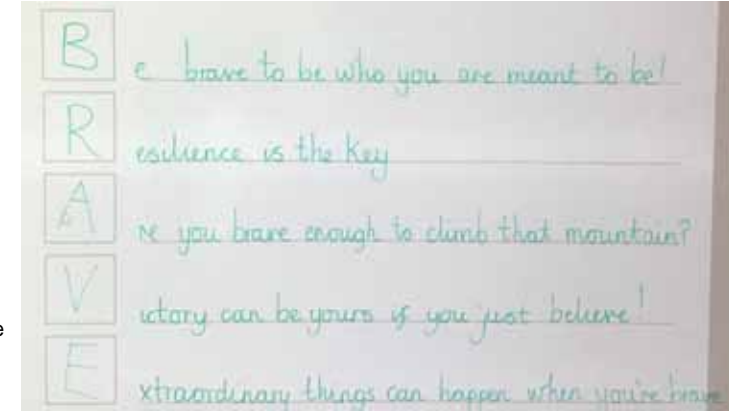 Be brave to be who you are meant to be!
Resilience is the key
Are you brave enough to climb that mountain?
Victory can be yours if you just believe!
Extraordinary things can happen when you're brave
e